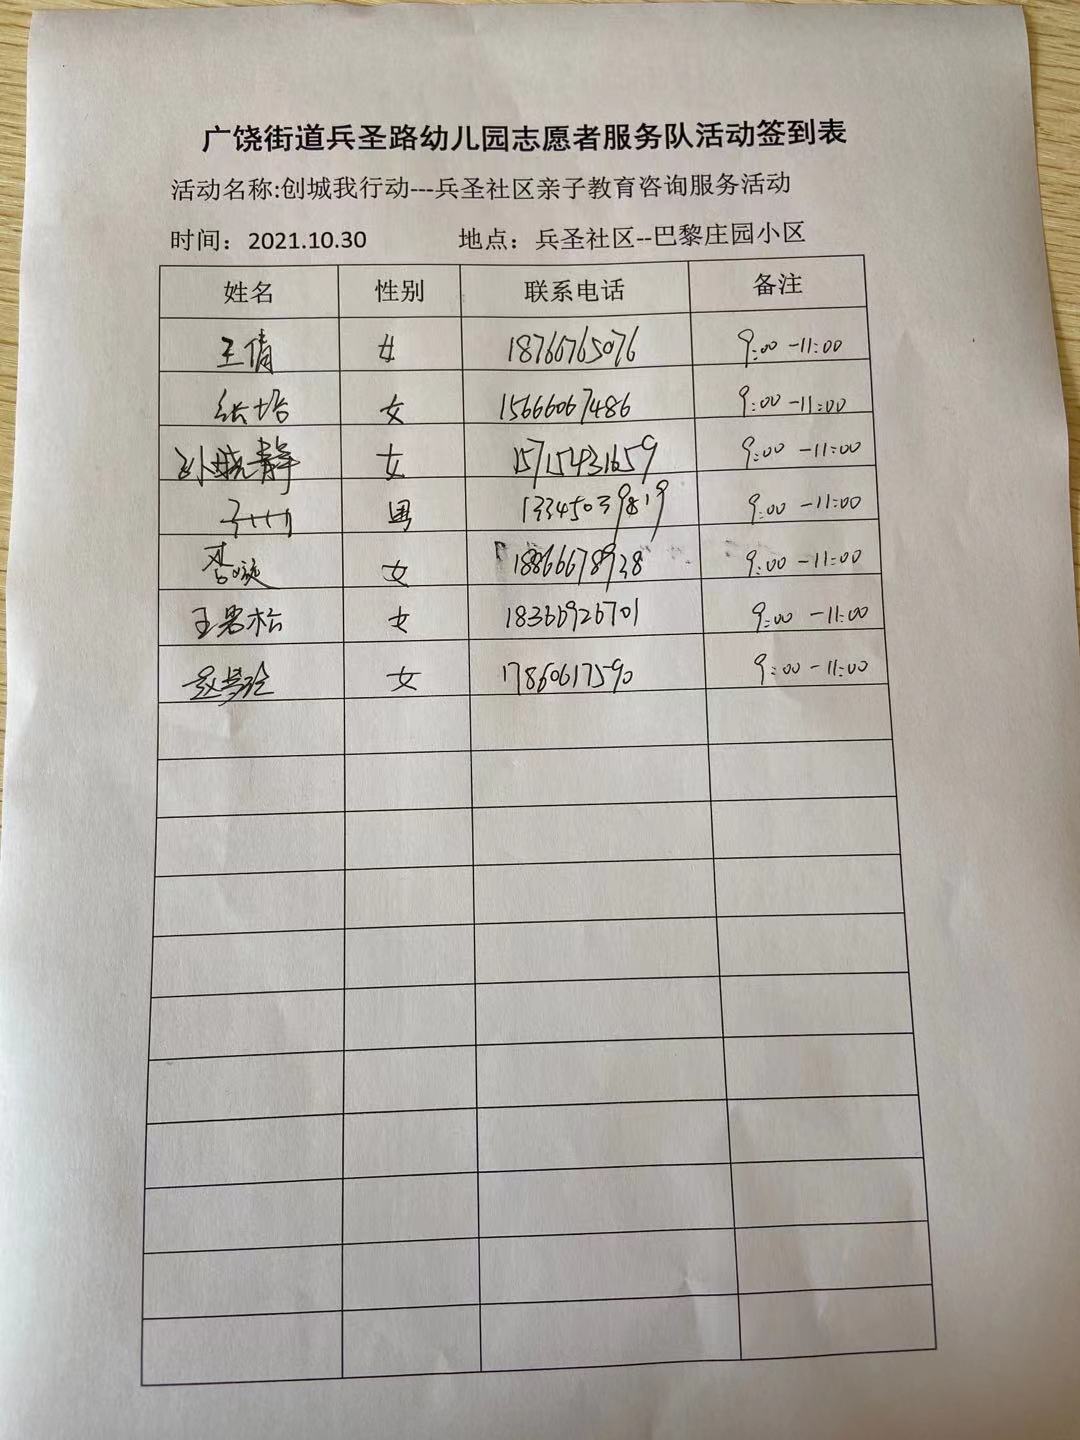 广饶街道兵圣路幼儿园志愿者服务队活动签到表
活动名称:创城我行动---兵圣社区亲子教育咨询服务活动
时间：2021.10.30 地点：兵圣社区--巴黎庄园小区
姓名 性别 联系电话 备注
王倩 女 18766765076 9:00-11:00
女 15666067486 9:00-11:00
孙晓静 女 15715431659 9:00-11:00
男 13345039819 9:00-11:00
李 女 9:00-11:00
王男松 女 18366926701 9:00-11:00
赵梦玲 女 17860617590 9:00-11:00